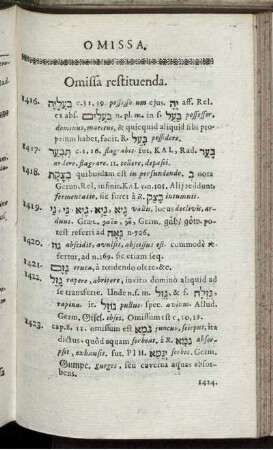 OMISSA.
Omissa restituenda.
1416. בְּעָלֶיהָ c. 31, 39. possessorum ejus. יָהּ aff. Rel.
ex abs. בְּעָלִים n. pl. m. in s. בַּעַל possessor,
dominus, maritus, & quicquid aliquid sibi pro-
prium habet, facit. R. בָּעַל possidere.
1417. תִּבְעַר c. 1. 16. flagrabit fut. KAL, Rad. בָּעַר
ardere, flagrare. 11. tollere, depasci.
1418. בְּצֵקֶת quibusdam est in perfundendo. בְ nota
Gerun. Rel. infinit. KAL vn. 101. Alij reddunt
fermentatio, sic foret à R. בָּצֵק intumuit.
1419. גַּיְא, גֵּיא, גַּי, גֵּי vallis, locus declivis, ar-
duus. Græc. γαῖα, γῆ. Germ. gäh/ göw. po-
test referri ad גָּאָה n. 706.
1420. גָּז abscidit, avulsit, abscissus est. commodè re-
fertur, ad n. 169. sic etiam seq.
1421. גָּזָם eruca, à tondendo oleres &c.
1422. גָּזַל rapere, abripere, invito domino aliquid ad
se transferre. Unde n. s. m. גָּזֵל, & f. גְּזֵלָה
rapina. it. גּוֹזָל pullus: spec. avium. Allud.
Germ. Gisel. obses. Omissum est c. 20, 19.
1423. cap. 8. 11. omissum est גֹּמֶא juncus, scirpus, ita
dictus: quòd aquam sorbeat, à R. גָּמָא absor-
psit, exhausit. fut. PIH. יְגַמֵּא sorbet. Germ.
Gumpe, gurges, seu caverna aquas absor-
bens.
1424.